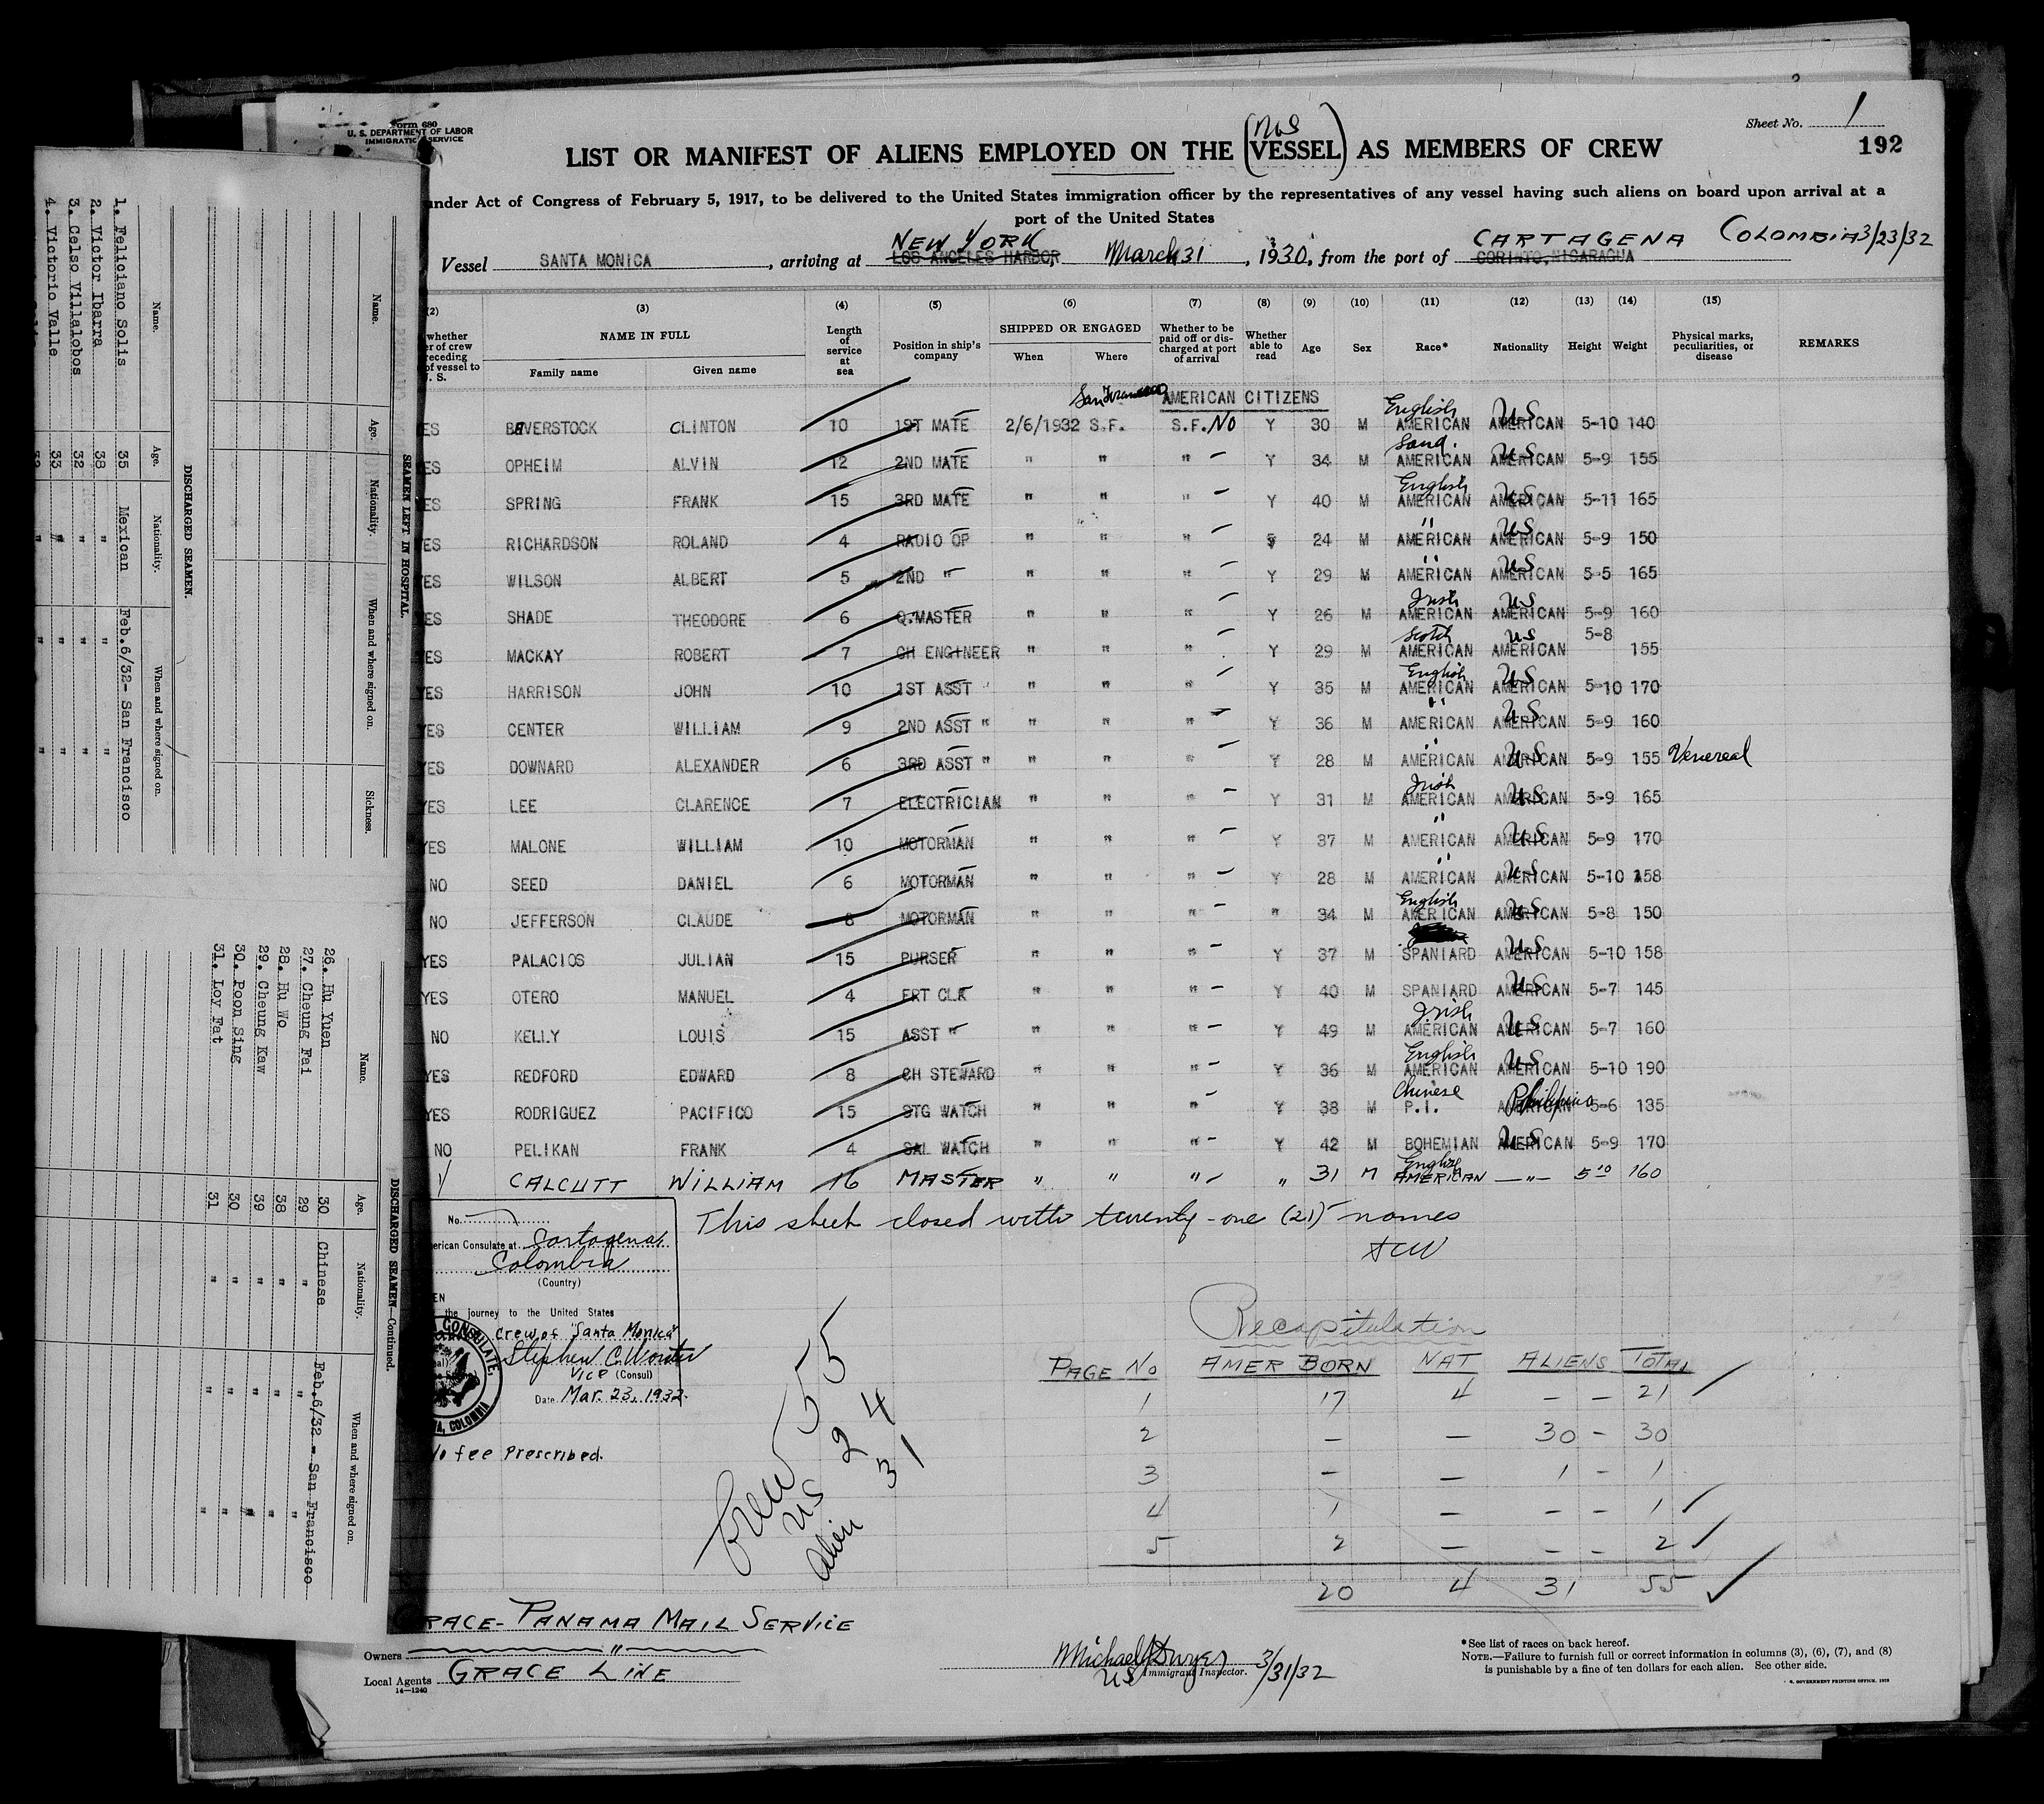 Form 680
U. S. DEPARTMENT OF LABOR
IMMIGRATION SERVICE
Sheet No. 1
192
LIST OR MANIFEST OF ALIENS EMPLOYED ON THE (VESSEL) AS MEMBERS OF CREW
under Act of Congress of February 5, 1917, to be delivered to the United States immigration officer by the representatives of any vessel having such aliens on board upon arrival at a
port of the United States
NEW YORK CARTAGENA COLOMBIA 3/23/32
Vessel SANTA MONICA, arriving at LOS ANGELES HARBOR, March 31, 1930, from the port of CORINTO, NICARAGUA
(2) (3) (4) (5) (6) (7) (8) (9) (10) (11) (12) (13) (14) (15)
whether
er of crew
receding
of vessel to
U. S.
NAME IN FULL
Family name Given name
Length of service at sea
Position in ship's company
SHIPPED OR ENGAGED
When Where
Whether to be paid off or discharged at port of arrival
Whether able to read
Age Sex Race* Nationality Height Weight
Physical marks, peculiarities, or disease
REMARKS
San Francisco AMERICAN CITIZENS
ES BEVERSTOCK CLINTON 10 1ST MATE 2/6/1932 S.F. S.F. No Y 30 M English AMERICAN AMERICAN US 5-10 140
ES OPHEIM ALVIN 12 2ND MATE " " " - Y 34 M Scand. AMERICAN AMERICAN US 5-9 155
ES SPRING FRANK 15 3RD MATE " " " - Y 40 M English AMERICAN AMERICAN US 5-11 165
ES RICHARDSON ROLAND 4 RADIO OP " " " - 24 M " AMERICAN AMERICAN US 5-9 150
ES WILSON ALBERT 5 2ND " " " " - Y 29 M " AMERICAN AMERICAN US 5-5 165
ES SHADE THEODORE 6 Q.MASTER " " " - Y 26 M Irish AMERICAN AMERICAN US 5-9 160
ES MACKAY ROBERT 7 CH ENGINEER " " " - Y 29 M Scotch AMERICAN AMERICAN US 5-8 155
YES HARRISON JOHN 10 1ST ASST " " " " - Y 35 M English AMERICAN AMERICAN US 5-10 170
YES CENTER WILLIAM 9 2ND ASST " " " " - Y 36 M " AMERICAN AMERICAN US 5-9 160
YES DOWNARD ALEXANDER 6 3RD ASST " " " " - Y 28 M " AMERICAN AMERICAN US 5-9 155 Venereal
YES LEE CLARENCE 7 ELECTRICIAN " " " - Y 31 M Irish AMERICAN AMERICAN US 5-9 165
YES MALONE WILLIAM 10 MOTORMAN " " " - Y 37 M " AMERICAN AMERICAN US 5-9 170
NO SEED DANIEL 6 MOTORMAN " " " - Y 28 M " AMERICAN AMERICAN US 5-10 158
NO JEFFERSON CLAUDE 8 MOTORMAN " " " - " 34 M English AMERICAN AMERICAN US 5-8 150
YES PALACIOS JULIAN 15 PURSER " " " - Y 37 M SPANIARD AMERICAN US 5-10 158
YES OTERO MANUEL 4 FRT CLK " " " - Y 40 M SPANIARD AMERICAN US 5-7 145
NO KELLY LOUIS 15 ASST " " " " - Y 49 M Irish AMERICAN AMERICAN US 5-7 160
YES REDFORD EDWARD 8 CH STEWARD " " " - Y 36 M English AMERICAN AMERICAN US 5-10 190
YES RODRIGUEZ PACIFICO 15 STG WATCH " " " - Y 38 M Chinese P.I. AMERICAN Philipino 5-6 135
NO PELIKAN FRANK 4 SAL WATCH " " " - Y 42 M BOHEMIAN AMERICAN US 5-9 170
Y CALCUTT WILLIAM 16 MASTER " " " - " 31 M English AMERICAN " 5 10 160
This sheet closed with twenty-one (21) names
SCW
No.
erican Consulate at Cartagena,
Colombia
(Country)
EN
the journey to the United States
Crew of "Santa Monica"
Stephen C. Worster
Vice (Consul)
Date Mar. 23, 1932.
CONSULATE
COLOMBIA
No fee Prescribed.
Crew 55
US 24
Alien 31
Recapitulation
PAGE No AMER BORN NAT ALIENS TOTAL
1 17 4 - - 21
2 - - 30 - 30
3 - - 1 - 1
4 1 - - - 1
5 2 - - - 2
20 4 31 55
GRACE-PANAMA MAIL SERVICE
Owners "
Local Agents GRACE LINE
14-1240
Michael J Dwyer
US Immigrant Inspector. 3/31/32
*See list of races on back hereof.
NOTE.—Failure to furnish full or correct information in columns (3), (6), (7), and (8)
is punishable by a fine of ten dollars for each alien. See other side.
U. S. GOVERNMENT PRINTING OFFICE. 1929
SEAMEN LEFT IN HOSPITAL.
Name. Age. Nationality. When and where signed on. Sickness.
DISCHARGED SEAMEN.
Name. Age. Nationality. When and where signed on.
1. Feliciano Solis 35 Mexican Feb.6/32- San Francisco
2. Victor Ibarra 38 " "
3. Celso Villalobos 32 " "
4. Victorio Valle 33 " "
DISCHARGED SEAMEN—Continued.
Name. Age. Nationality. When and where signed on.
26. Hu Yuen 30 Chinese Feb.6/32 - San Francisco
27. Cheung Fai 29 " "
28. Hu Wo 38 " "
29. Cheung Kaw 39 " "
30. Poon Sing 30 " "
31. Loy Fat 31 " "